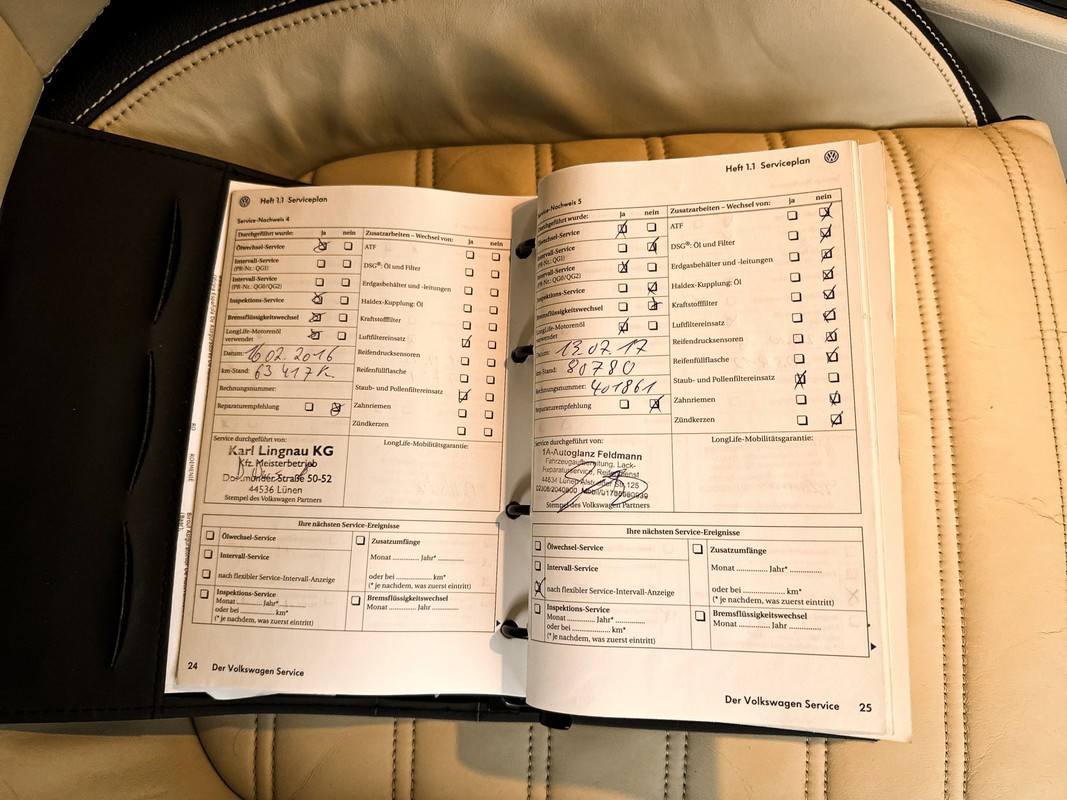 Heft 1.1 Serviceplan
Service-Nachweis 4
Durchgeführt wurde: ja nein
Ölwechsel-Service
Intervall-Service
(PR-Nr.: QG1)
Intervall-Service
(PR-Nr.: QG0/QG2)
Inspektions-Service
Bremsflüssigkeitswechsel
LongLife-Motorenöl
verwendet
Datum: 16.02.2016
km-Stand: 63 417 K
Rechnungsnummer:
Reparaturempfehlung
Zusatzarbeiten – Wechsel von: ja nein
ATF
DSG®: Öl und Filter
Erdgasbehälter und -leitungen
Haldex-Kupplung: Öl
Kraftstofffilter
Luftfiltereinsatz
Reifendrucksensoren
Reifenfüllflasche
Staub- und Pollenfiltereinsatz
Zahnriemen
Zündkerzen
Service durchgeführt von:
Karl Lingnau KG
Kfz. Meisterbetrieb
Dortmunder Straße 50-52
44536 Lünen
Stempel des Volkswagen Partners
LongLife-Mobilitätsgarantie:
Ihre nächsten Service-Ereignisse
Ölwechsel-Service
Intervall-Service
nach flexibler Service-Intervall-Anzeige
Inspektions-Service
Monat ............ Jahr* ............
oder bei ............ km*
(* je nachdem, was zuerst eintritt)
Zusatzumfänge
Monat ............ Jahr* ............
oder bei ............ km*
(* je nachdem, was zuerst eintritt)
Bremsflüssigkeitswechsel
Monat ............ Jahr ............
24 Der Volkswagen Service
Heft 1.1 Serviceplan
Service-Nachweis 5
Durchgeführt wurde: ja nein
Ölwechsel-Service
Intervall-Service
(PR-Nr.: QG1)
Intervall-Service
(PR-Nr.: QG0/QG2)
Inspektions-Service
Bremsflüssigkeitswechsel
LongLife-Motorenöl
verwendet
Datum: 13.07.17
km-Stand: 80780
Rechnungsnummer: 401861
Reparaturempfehlung
Zusatzarbeiten – Wechsel von: ja nein
ATF
DSG®: Öl und Filter
Erdgasbehälter und -leitungen
Haldex-Kupplung: Öl
Kraftstofffilter
Luftfiltereinsatz
Reifendrucksensoren
Reifenfüllflasche
Staub- und Pollenfiltereinsatz
Zahnriemen
Zündkerzen
Service durchgeführt von:
1A-Autoglanz Feldmann
Fahrzeugaufbereitung, Lack-
Reparaturservice, Reifendienst
44534 Lünen Str. 125
02306/2040900
Stempel des Volkswagen Partners
LongLife-Mobilitätsgarantie:
Ihre nächsten Service-Ereignisse
Ölwechsel-Service
Intervall-Service
nach flexibler Service-Intervall-Anzeige
Inspektions-Service
Monat ............ Jahr* ............
oder bei ............ km*
(* je nachdem, was zuerst eintritt)
Zusatzumfänge
Monat ............ Jahr* ............
oder bei ............ km*
(* je nachdem, was zuerst eintritt)
Bremsflüssigkeitswechsel
Monat ............ Jahr ............
Der Volkswagen Service 25